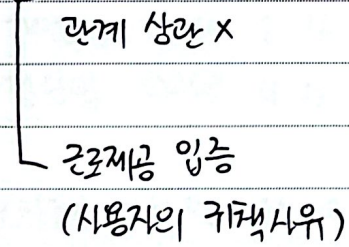 관계 상관 X
근로제공 입증
(사용자의 귀책사유)